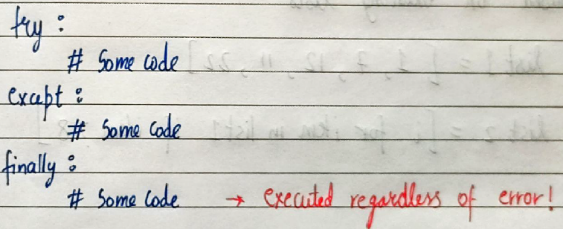 try :
# Some code
except :
# Some code
finally :
# Some code → executed regardless of error!